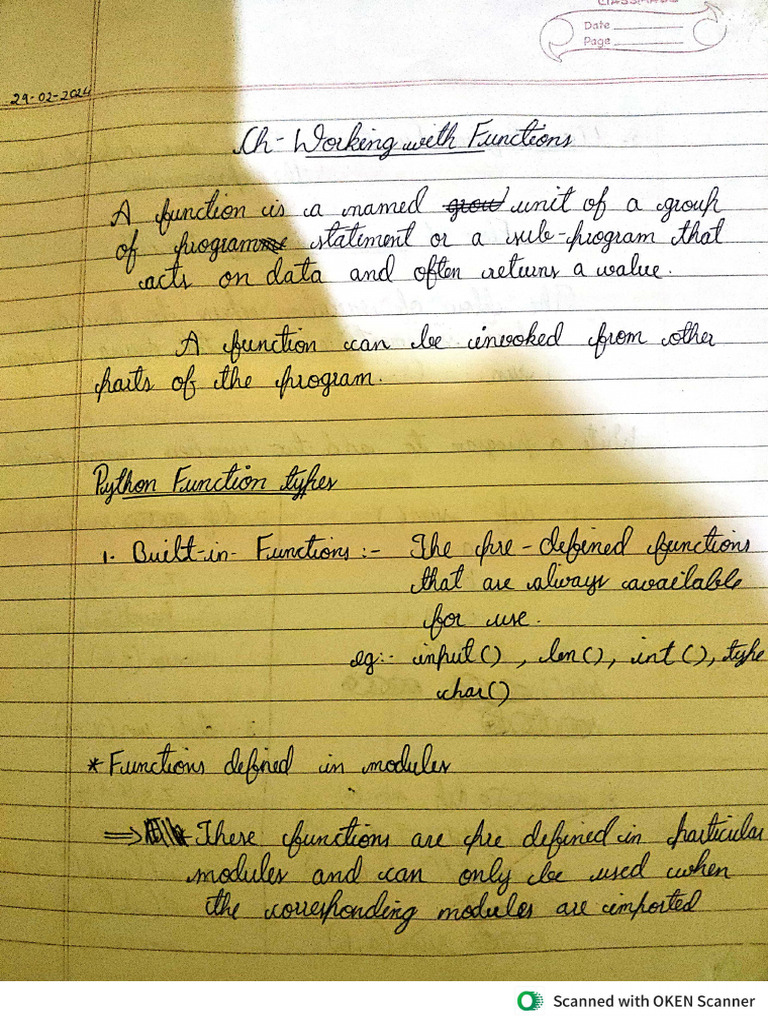 CLASSMATE
Date
Page
29-02-2024
Ch- Working with Functions
A function is a named unit of a group
of program statement or a sub-program that
acts on data and often returns a value.
A function can be invoked from other
parts of the program.
Python Function types
1. Built-in- Functions :- The pre-defined functions
that are always available
for use.
eg:- input() , len(), int(), type
char()
* Functions defined in modules
=> * These functions are pre defined in particular
modules and can only be used when
the corresponding modules are imported
Scanned with OKEN Scanner